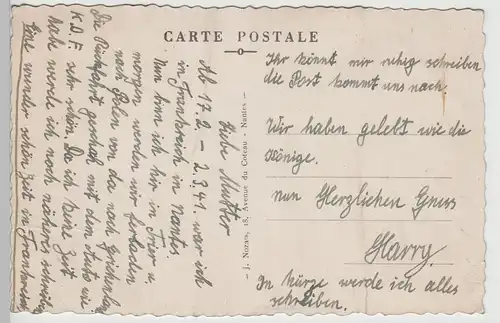 CARTE POSTALE
Ab 17.2 - 2.3.41. war ich
in Frankreich in Nantes
Nun binn ich hir in Trier u
morgen werden wir ferladen
nach Polen von da nach Grichenland
Die Rückfahrt geschah mit dem Auto wie
K.D.F sehr schön. Da ich keine Zeit
habe werde ich noch näheres schreiben
Eine wunder schön Zeit in Frankreich
Liebe Mutter
J. Nozais, 18, Avenue du Coteau - Nantes
Ihr könnt mir ruhig schreiben
die Post kommt uns nach.
Wir haben gelebt wie die
Könige.
nun Herzlichen Gruss
Harry.
In kürze werde ich alles
schreiben.